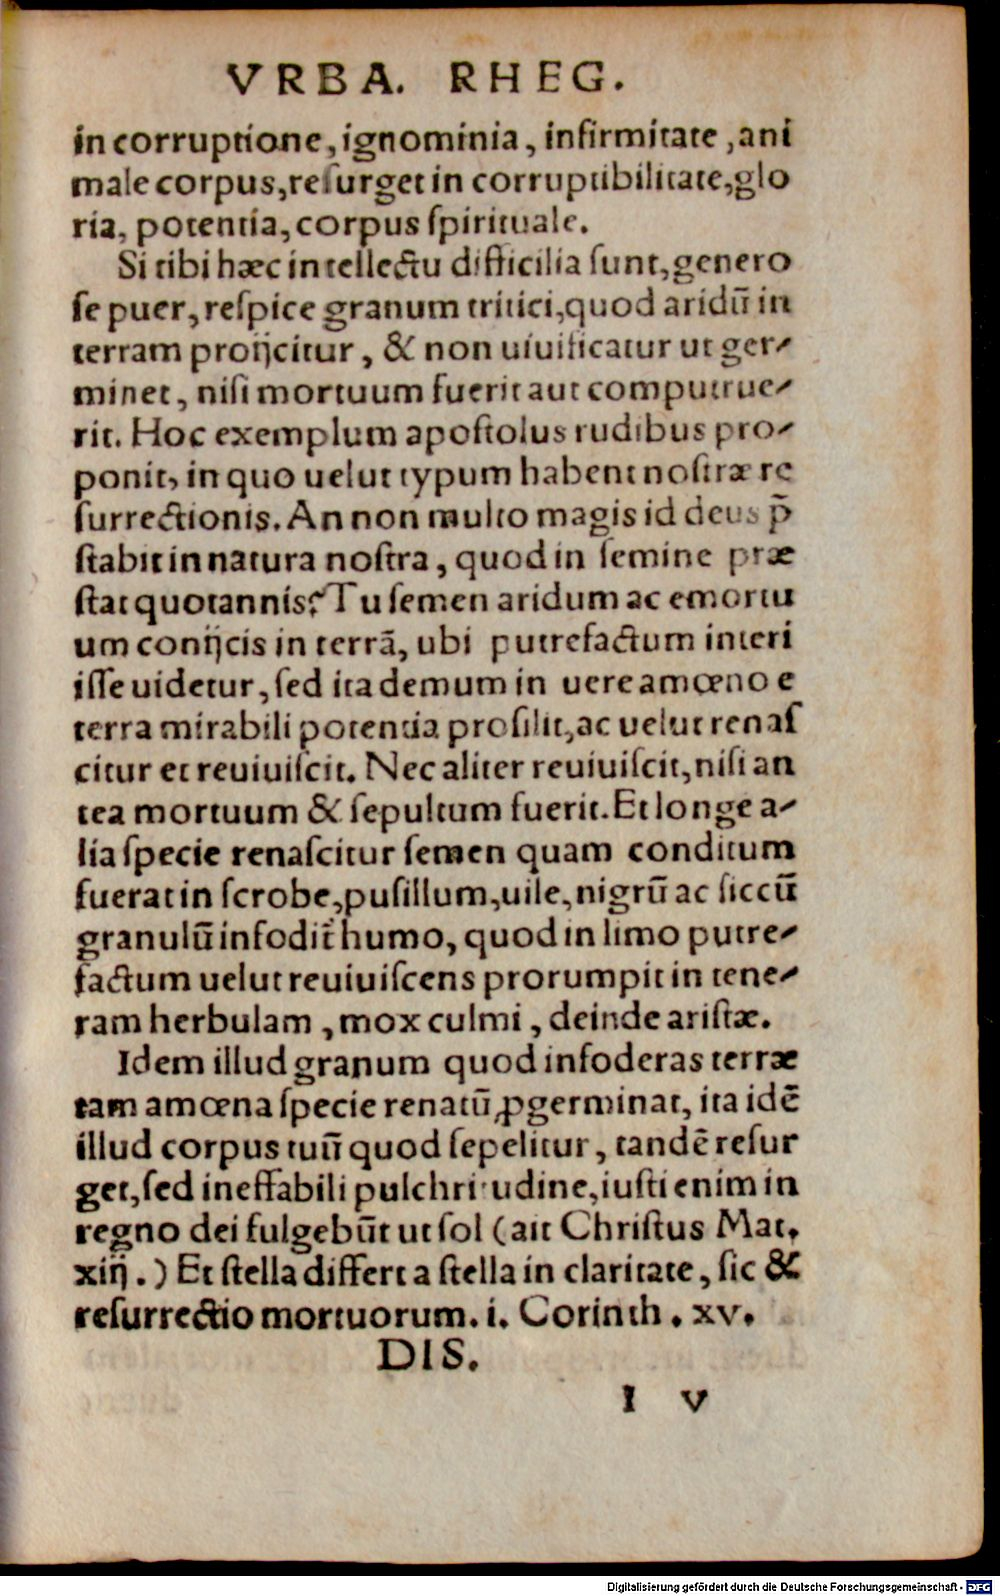 VRBA. RHEG.
in corruptione, ignominia, infirmitate, ani
male corpus, reſurget in corruptibilitate, glo
ria, potentia, corpus ſpirituale.
Si tibi hæc intellectu difficilia ſunt, genero
ſe puer, reſpice granum tritici, quod aridū in
terram proijcitur, & non uiuificatur ut ger-
minet, niſi mortuum fuerit aut computrue-
rit. Hoc exemplum apoſtolus rudibus pro-
ponit, in quo uelut typum habent noſtræ re
ſurrectionis. An non multo magis id deus p̄
ſtabit in natura noſtra, quod in ſemine præ
ſtat quotannis? Tu ſemen aridum ac emortu
um conijcis in terrā, ubi putrefactum interi
iſſe uidetur, ſed ita demum in uere amœno e
terra mirabili potentia proſilit, ac uelut renaſ
citur et reuiuiſcit. Nec aliter reuiuiſcit, niſi an
tea mortuum & ſepultum fuerit. Et longe a-
lia ſpecie renaſcitur ſemen quam conditum
fuerat in ſcrobe, puſillum, uile, nigrū ac ſiccū
granulū infodit̃ humo, quod in limo putre-
factum uelut reuiuiſcens prorumpit in tene-
ram herbulam, mox culmi, deinde ariſtæ.
Idem illud granum quod infoderas terræ
tam amœna ſpecie renatū ꝓgerminat, ita idē
illud corpus tuū quod ſepelitur, tandē reſur
get, ſed ineffabili pulchritudine, iuſti enim in
regno dei fulgebūt ut ſol (ait Chriſtus Mat.
xiij.) Et ſtella differt a ſtella in claritate, ſic &
reſurrectio mortuorum. i. Corinth. xv.
DIS.
I v
Digitalisierung gefördert durch die Deutsche Forschungsgemeinschaft - DFG